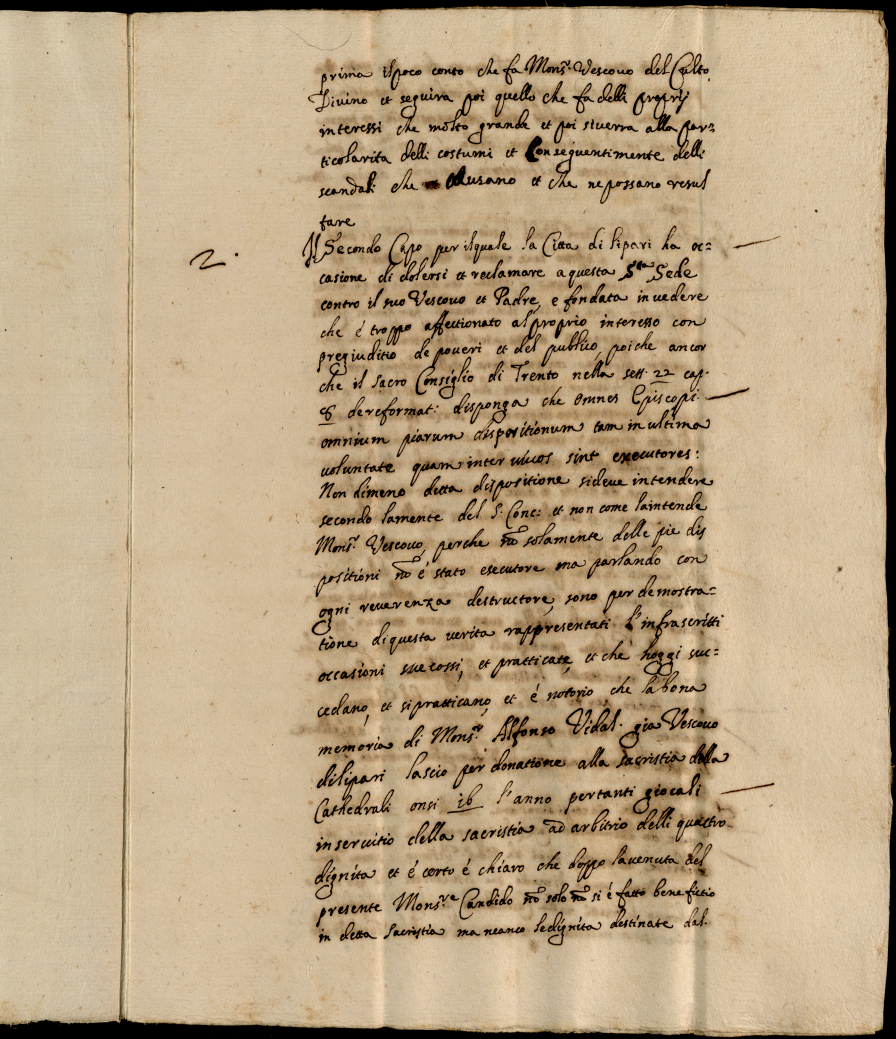 prima il poco conto che fa Mons.r Vescovo del Culto
Divino et seguira poi quello che fa delli proprij
interessi che molto grande et poi si verra alla par=
ticolarita delli costumi et Conseguentimente delli
scandali che causano et che ne possano resul
tare
2. Il Secondo Capo per il quale la Citta di lipari ha oc=
casione di dolersi et reclamare a questa S.ta Sede
contro il suo Vescovo et Padre, e fondata in vedere
che é troppo affectionato al proprio interesso con
pregiuditio de poveri et del publico, poiche ancor
che il sacro Consiglio di Trento nella sess. 22 cap.
8 de reformat: disponga che omnes Episcopi
omnium piarum dispositionum tam in ultima
voluntate quam inter vivos sint executores:
Non dimeno detta dispositione si deve intendere
secondo la mente del S. Conc: et non come la intende
Mons.r Vescovo, perche nō solamente delle pie dis
positioni nō é stato esecutore ma parlando con
ogni reverenza destructore, sono per demostra=
tione di questa verita rappresentati l'infrascritti
occasioni successi, et pratticate, et che hoggi suc=
cedano, et si pratticano, et é notorio che la bona
memoria di Mons.r Alfonso Vidal. gia Vescovo
di lipari lascio per donatione alla sacristia della
Cathedrali onsi 16 l'anno per tanti giocali
in servitio della sacristia ad arbitrio delli quattro
dignita et é certo é chiaro che doppo la venuta del
presente Mons.re Candido nō solo nō si é fatto beneficio
in detta Sacristia ma neanco le dignita destinate dal.